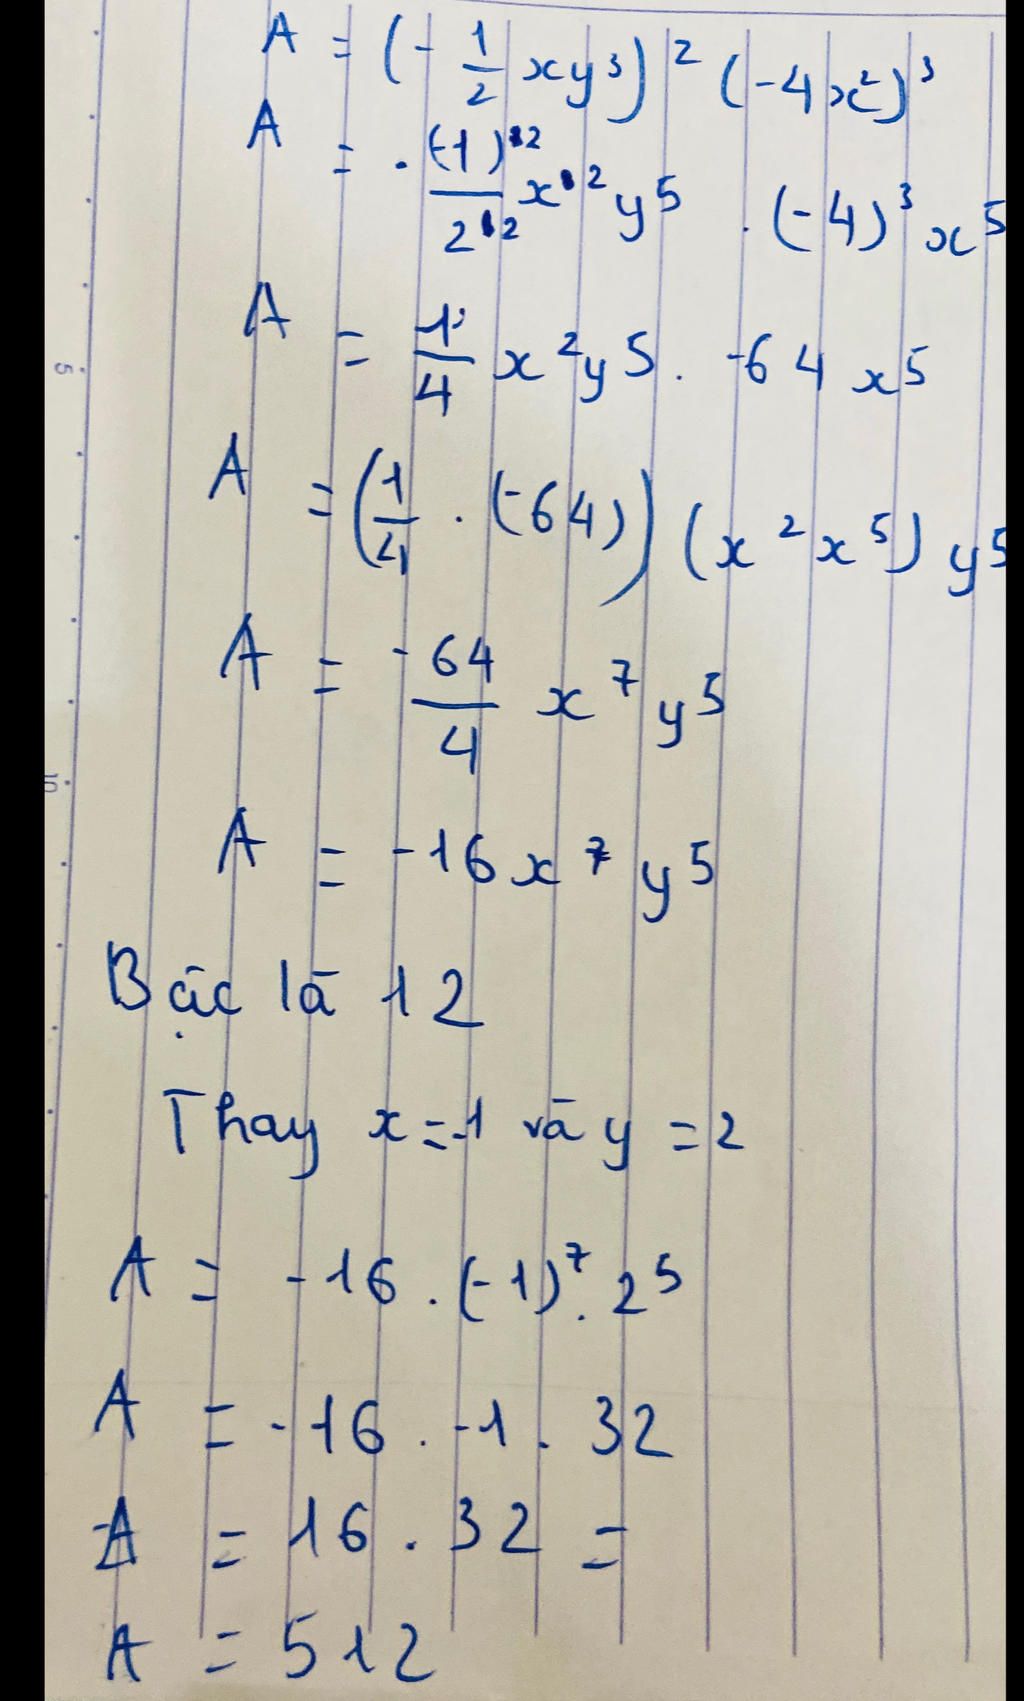 A = (- 1/2 xy³)² (-4x²)³
A = . (-1)²/2² x² y⁵ . (-4)³ x⁵
A = 1/4 x² y⁵ . -64 x⁵
A = (1/4 . (-64)) (x² x⁵) y⁵
A = -64/4 x⁷ y⁵
A = -16 x⁷ y⁵
Bậc là 12
Thay x = -1 và y = 2
A = -16 . (-1)⁷ . 2⁵
A = -16 . -1 . 32
A = 16 . 32 =
A = 512
5
10